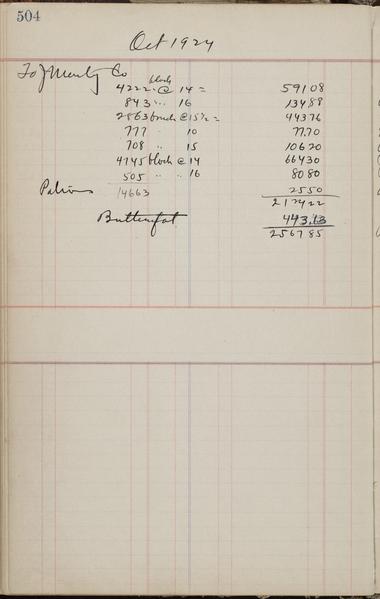 504
Oct 1924
To J Co
block
4222 @ 14 = 591 08
843 " " 16 134 88
2863 @ 15 1/2 = 443 76
777 " 10 77 70
708 " 15 106 20
4745 block @ 14 664 30
505 " " 16 80 80
Patrons 14663 25 50
217422
Butterfat 443.13
2567 85